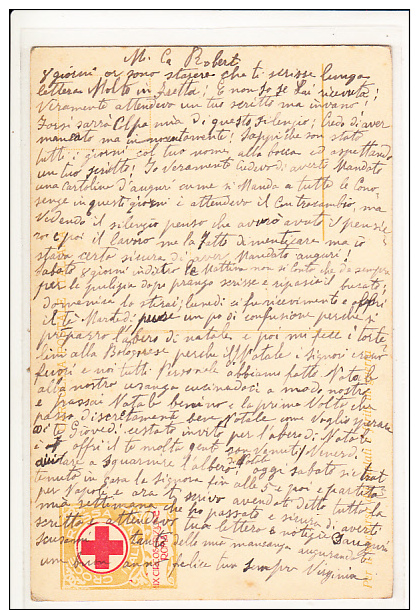 M. Ca Robert
8 giorni or sono stasera che ti scrissi lunga
lettera Molto in fretta! E non so se l'ai ricevuta!
Veramente attendevo un tuo scritto ma invano!
Forsi sarrà Colpa mia di questo silenzio; Credo di aver
mancato ma innocentemente! Sappi che son stata
tutti i giorni col tuo nome alla bocca ed aspettando
un tuo scritto! Io Veramente Credevo di averti Mandato
una Cartolina d'auguri come si Manda a tutte le Cono
senze in questi giorni e attendevo il Contracambio, ma
Vedendo il silenzio penso che avevo avuto il pensie
ro e poi il lavoro me la fatto dimenticare ma io
stava certa sicura di aver Mandato auguri!
Sabato 8 giorni indietro la Mattina non ti conto che da sempre
per le pulizia dopo pranzo scrissi e ripasai il bucato;
domenica lo stirai; lunedi si fu ricevimento e offri
il te Martedi pure un po di confusione perche si
preparò l'albero di natale, e poi mi feci i torte
lini alla Bolognese perche il Natale i Signori erano
fuori e noi tutti Personale abbiamo fatto Natale
alla nostra usanza cucinandosi a modo nostro
e passai Natale benino e la prima Volta che
passo discretamente bene Natale come Voglio sperare
di te Giovedi cestato invito per l'abero di Natale
e offri il te molta gente Venerdi
a squarnire l'albero; oggi sabato sie trat
tenuta in casa la Signora fin alle 5 e poi e partita
per Napoli e ora ti scrivo avendoti detto tutto la
mia settimana che o passato e sicura di averti
scritto e attendevo tua lettera o notizie
scusami tanto della mia mancanza augurandoti
un buon anno felice tua sempre Virginia
CROCE